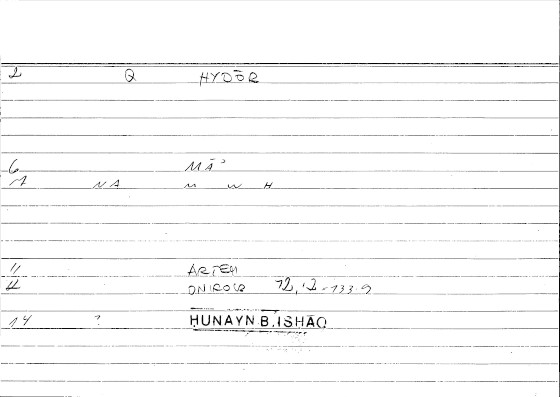 2 Q HYDŌR
6 MĀʾ
NA M W H
11 ARTEM
12 ONIROCR 12,12-133.9
14 ? ḤUNAYN B. ISḤĀQ